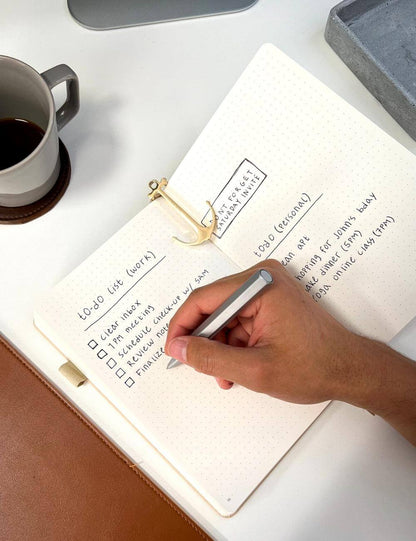 to-do list (work)
clear inbox
1PM meeting
schedule check-up w/ sam
Review
Finalize
FORGET
SATURDAY INVITE
to do (personal)
apt
for John's bday
dinner (5PM)
online class (7PM)